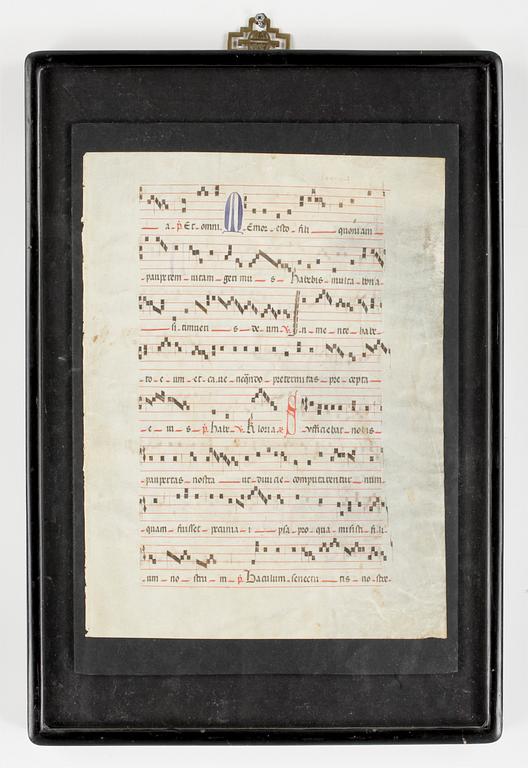 a p Et omni. MEmor esto fili quoniam
pauperem vitam gerimus habebis multa bona
si timueris deum V In mente habe
to eum et cave nequando pretermittas precepta
eius p habe V Gloria Sufficiebat nobis
paupertas nostra ut divicie computarentur num
quam fuisset pecunia ipsa pro qua misisti fili
um nostrum p Baculum senectutis nostre